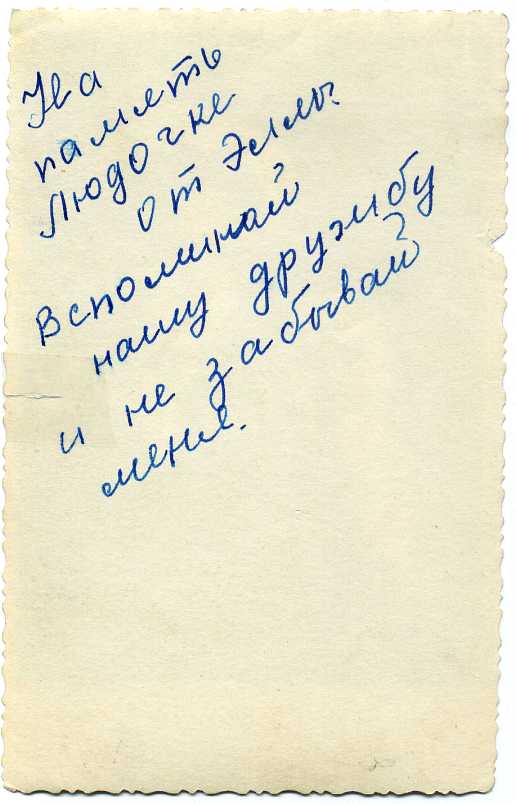 На
память
Людочке
от Эллы.
Вспоминай
нашу дружбу
и не забывай
меня.